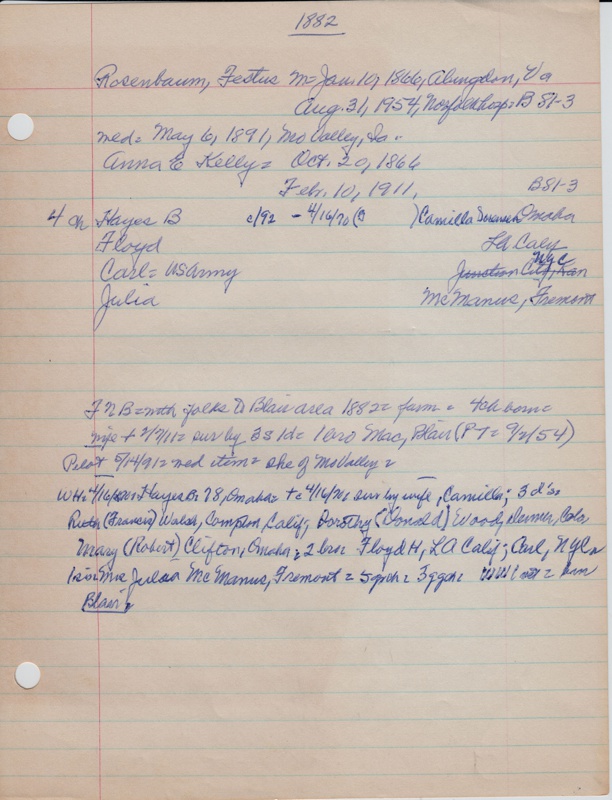 1882
Rosenbaum, Festus M= Jan. 10, 1866, Abingdon, Va
Aug. 31, 1954, Norfolk hosp= B 81-3
med= May 6, 1891, Mo Valley, Ia.
Anna E Kelly= Oct. 20, 1866
Feb. 10, 1911, B 81-3
4 ch Hayes B c/92 - 4/16/70 ( ) Camilla Omaha
Floyd LA Calif
Carl= US Army Junction City, Kan NYC
Julia McManus, Fremont
with folks to Blair area 1882= farm = 4 ch born=
wife + 2/ /11= sur by 3s 1d= 1 bro Mac, Blair (PT= 9/2/54)
Pilot 5/14/91= wed item= she of Mo Valley=
Hayes B= 78, Omaha= + 4/16/ sur by wife, Camilla; 3 d's=
(Francis) Walsh, Compton, Calif; Dorothy (Donald) Wood, Denver, Colo
Mary (Robert) Clifton, Omaha; 2 bro= Floyd H, LA Calif; Carl, NYC=
1 sis= Mrs Julia McManus, Fremont= 5 grch= 3 ggch= WW I vet= born
Blair=